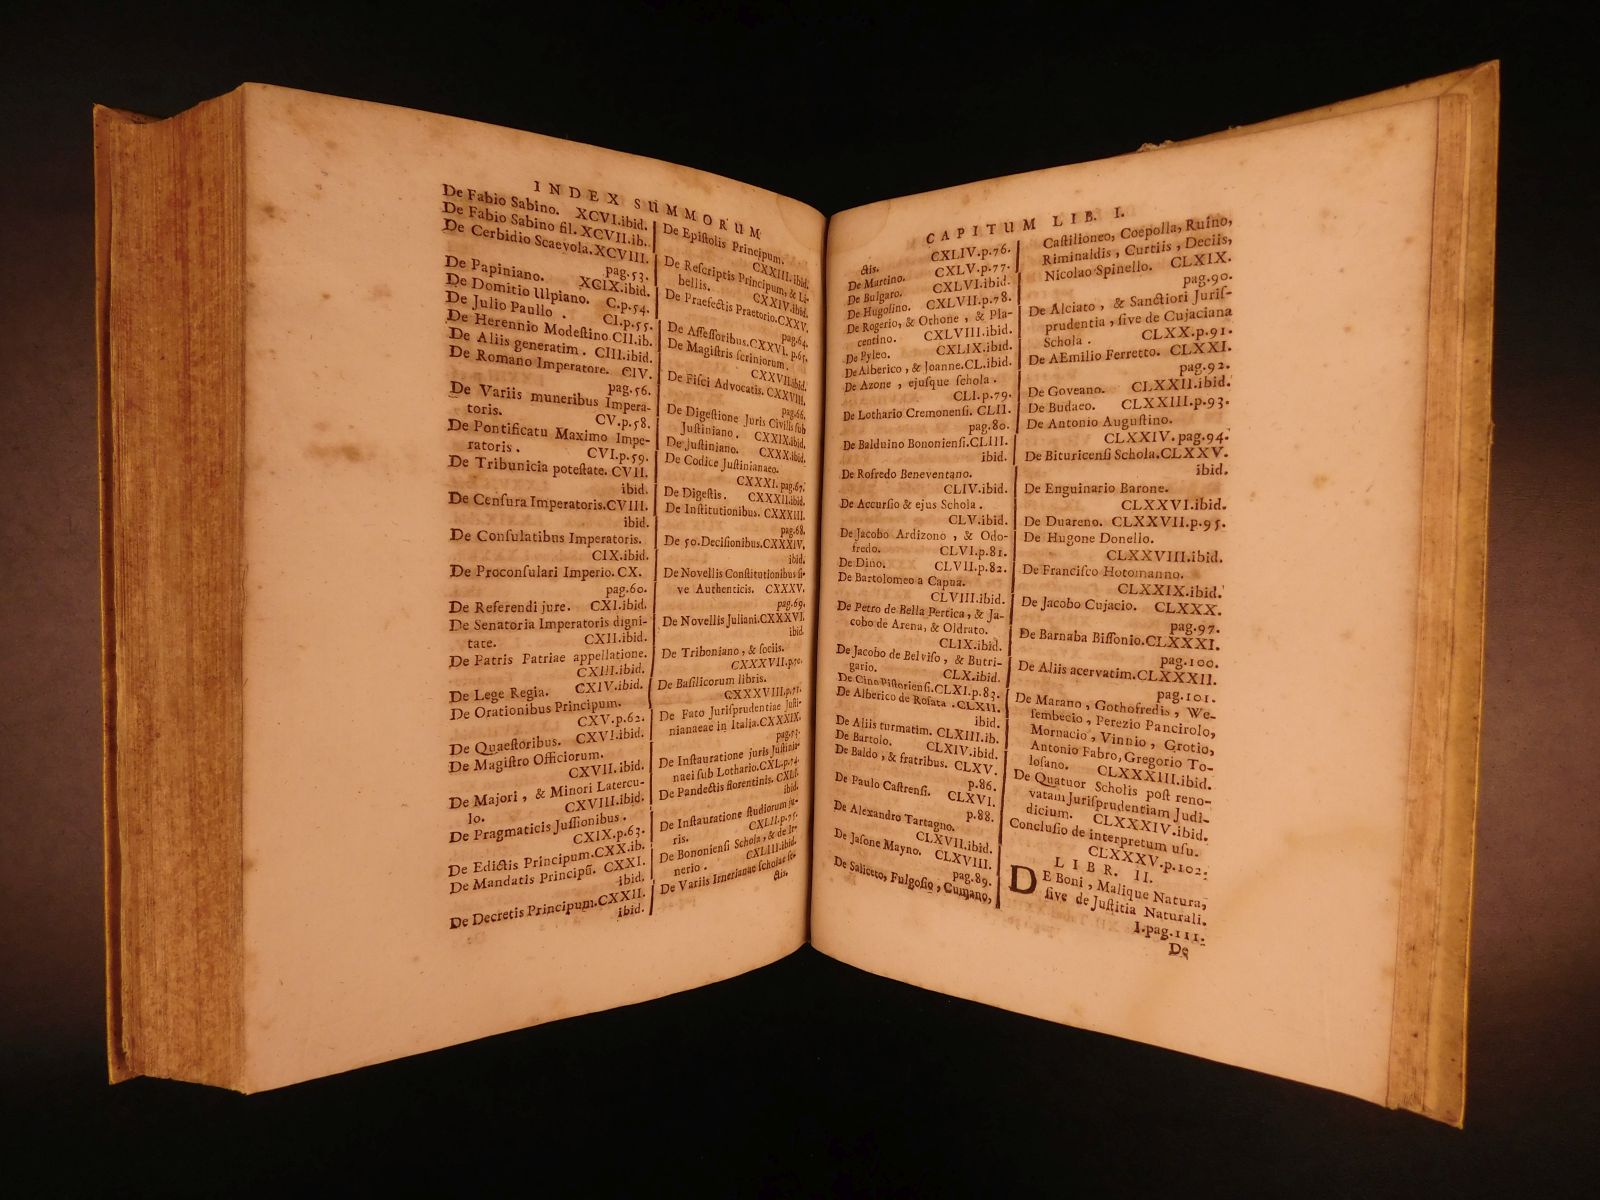 INDEX SUMMORUM
De Fabio Sabino. XCVI.ibid.
De Fabio Sabino fil. XCVII.ib.
De Cerbidio Scaevola. XCVIII.
pag.53.
De Papiniano. XCIX.ibid.
De Domitio Ulpiano. C.p.54.
De Julio Paullo . CI.p.55.
De Herennio Modestino CII.ib.
De Aliis generatim. CIII.ibid.
De Romano Imperatore. CIV.
pag.56.
De Variis muneribus Impera-
toris. CV.p.58.
De Pontificatu Maximo Impe-
ratoris . CVI.p.59.
De Tribunicia potestate. CVII.
ibid.
De Censura Imperatoris.CVIII.
ibid.
De Consulatibus Imperatoris.
CIX.ibid.
De Proconsulari Imperio. CX.
pag.60.
De Referendi jure. CXI.ibid.
De Senatoria Imperatoris digni-
tate. CXII.ibid.
De Patris Patriae appellatione.
CXIII.ibid.
De Lege Regia. CXIV.ibid.
De Orationibus Principum.
CXV.p.62.
De Quaestoribus. CXVI.ibid.
De Magistro Officiorum.
CXVII.ibid.
De Majori , & Minori Latercu-
lo. CXVIII.ibid.
De Pragmaticis Jussionibus .
CXIX.p.63.
De Edictis Principum.CXX.ib.
De Mandatis Principũ. CXXI.
ibid.
De Decretis Principum.CXXII.
ibid.
De Epistolis Principum.
CXXIII.ibid.
De Rescriptis Principum, & Li-
bellis. CXXIV.ibid.
De Praefectis Praetorio.CXXV.
pag.64.
De Assessoribus.CXXVI. p.65.
De Magistris scriniorum.
CXXVII.ibid.
De Fisci Advocatis. CXXVIII.
pag.66.
De Digestione Juris Civilis sub
Justiniano. CXXIX.ibid.
De Justiniano. CXXX.ibid.
De Codice Justinianaeo.
CXXXI. pag.67.
De Digestis. CXXXII.ibid.
De Institutionibus. CXXXIII.
pag.68.
De 50.Decisionibus.CXXXIV.
ibid.
De Novellis Constitutionibus si-
ve Authenticis. CXXXV.
pag.69.
De Novellis Juliani.CXXXVI.
ibid.
De Triboniano, & sociis.
CXXXVII.p.70.
De Basilicorum libris.
CXXXVIII.p.71.
De Fato Jurisprudentiae Justi-
nianaeae in Italia.CXXXIX.
pag.73.
De Instauratione juris Justinia-
naei sub Lothario.CXL.p.74.
De Pandectis florentinis. CXLI.
ibid.
De Instauratione studiorum ju-
ris. CXLII.p.75.
De Bononiensi Schola, & de Ir-
nerio . CXLIII.ibid.
De Variis Irnerianae scholae se-
ctis.
CAPITUM LIB. I.
ctis. CXLIV.p.76.
De Martino. CXLV.p.77.
De Bulgaro. CXLVI.ibid.
De Hugolino. CXLVII.p.78.
De Rogerio, & Othone , & Pla-
centino. CXLVIII.ibid.
De Pyleo. CXLIX.ibid.
De Alberico , & Joanne.CL.ibid.
De Azone , ejusque schola .
CLI.p.79.
De Lothario Cremonensi. CLII.
pag.80.
De Balduino Bononiensi.CLIII.
ibid.
De Rofredo Beneventano.
CLIV.ibid.
De Accursio & ejus Schola .
CLV.ibid.
De Jacobo Ardizono , & Odo-
fredo. CLVI.p.81.
De Dino. CLVII.p.82.
De Bartolomeo a Capua.
CLVIII.ibid.
De Petro de Bella Pertica, & Ja-
cobo de Arena, & Oldrato.
CLIX.ibid.
De Jacobo de Belviso , & Butri-
gario. CLX.ibid.
De Cino Pistoriensi.CLXI.p.83.
De Alberico de Rosata .CLXII.
ibid.
De Aliis turmatim. CLXIII.ib.
De Bartolo. CLXIV.ibid.
De Baldo , & fratribus. CLXV.
p.86.
De Paulo Castrensi. CLXVI.
p.88.
De Alexandro Tartagno.
CLXVII.ibid.
De Jasone Mayno. CLXVIII.
pag.89.
De Saliceto, Fulgosio , Cumano,
Castilioneo, Coepolla, Ruino,
Riminaldis , Curtiis , Deciis,
Nicolao Spinello. CLXIX.
pag.90.
De Alciato , & Sanctiori Juris-
prudentia , sive de Cujaciana
Schola . CLXX.p.91.
De AEmilio Ferretto. CLXXI.
pag.92.
De Goveano. CLXXII.ibid.
De Budaeo. CLXXIII.p.93.
De Antonio Augustino.
CLXXIV.pag.94.
De Bituricensi Schola.CLXXV.
ibid.
De Enguinario Barone.
CLXXVI.ibid.
De Duareno. CLXXVII.p.95.
De Hugone Donello.
CLXXVIII.ibid.
De Francisco Hotomanno.
CLXXIX.ibid.
De Jacobo Cujacio. CLXXX.
pag.97.
De Barnaba Bissonio.CLXXXI.
pag.100.
De Aliis acervatim.CLXXXII.
pag.101.
De Marano , Gothofredis , We-
sembecio , Perezio Pancirolo,
Mornacio , Vinnio , Grotio,
Antonio Fabro, Gregorio To-
losano. CLXXXIII.ibid.
De Quatuor Scholis post reno-
vatam Jurisprudentiam Judi-
dicium. CLXXXIV.ibid.
Conclusio de interpretum usu.
CLXXXV.p.102.
LIBR. II.
DE Boni , Malique Natura,
sive de Justitia Naturali.
I.pag.111.
De